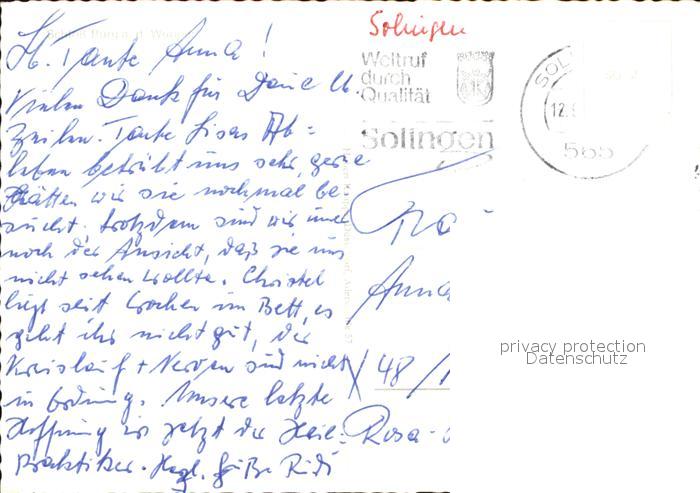 Solingen
Lb. Tante Anna!
Vielen Dank für Deine lb.
Zeilen. Tante Lisas Ab=
leben betrübt uns sehr, gerne
hätten wir sie nochmal be
sucht, trotzdem sind wir immer
noch der Ansicht, daß sie uns
nicht sehen wollte. Christel
liegt seit Wochen im Bett, es
geht ihr nicht gut, der
Kreislauf + Nerven sind nicht
in Ordnung. Unsere letzte
Hoffnung ist jetzt der Heil=
praktiker. Hrzl. Grüße Rudi
Weltruf
durch
Qualität
Solingen
SOL
12.
565
Anna
48/1
Rosa-
privacy protection
Datenschutz